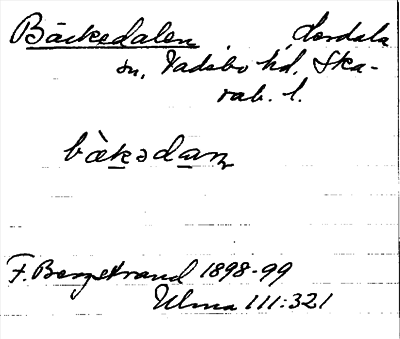 Bäckedalen, Hordala
sn, Vadsbo hd, Ska-
rab. l.
bæ̀kədan
F. Bergstrand 1898-99
Ulma 111:321